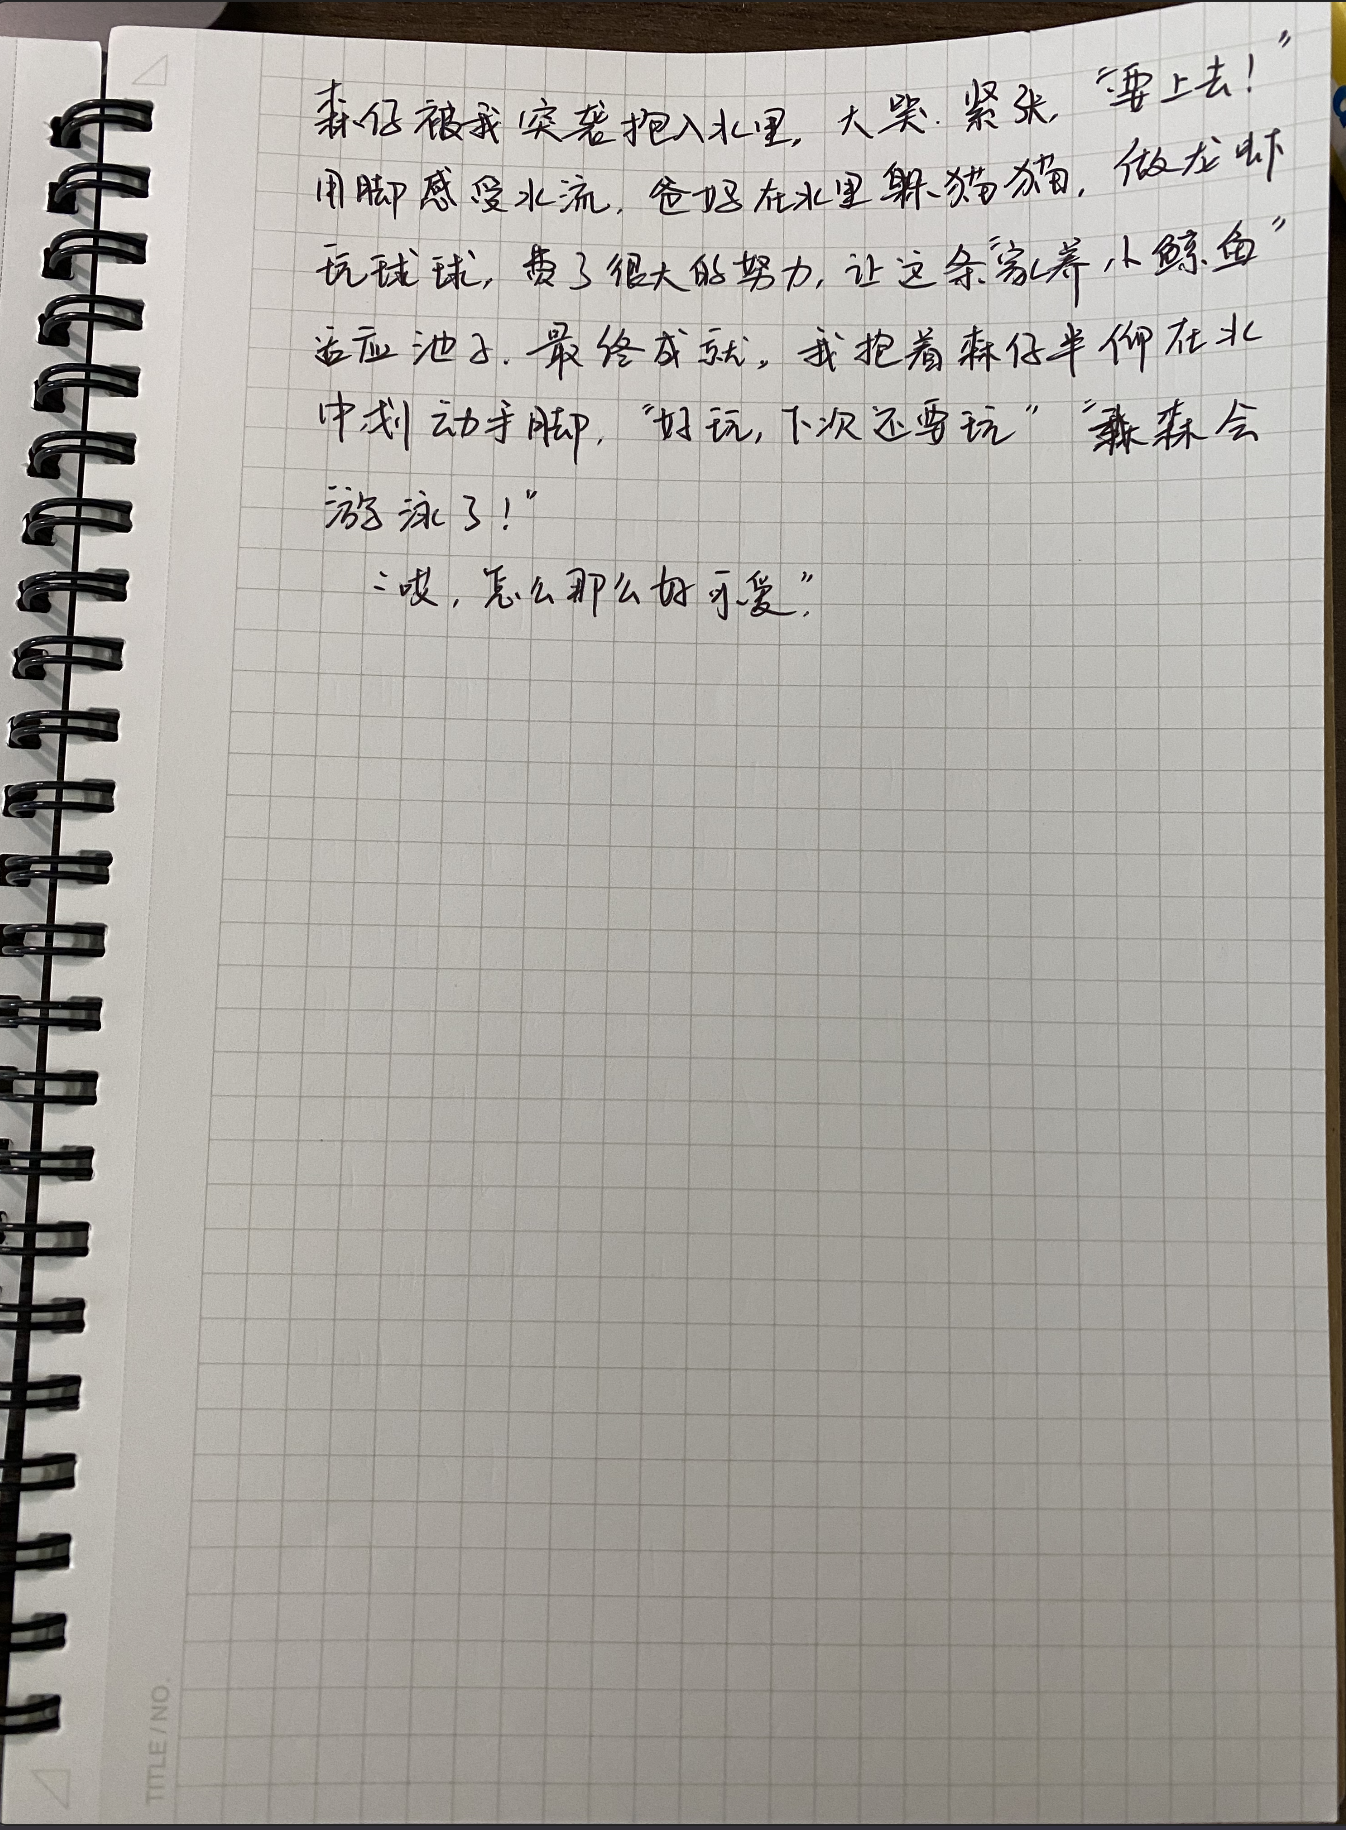 森仔被我突袭抱入水里，大哭.紧张，“要上去！”
用脚感受水流，爸妈在水里躲猫猫，做龙虾
玩球球，费了很大的努力，让这条“家养小鲸鱼”
适应池子.最终成就，我抱着森仔半仰在水
中划动手脚，“好玩，下次还要玩”“森森会
游泳了！”
“哎，怎么那么好可爱”.
TITLE / NO.